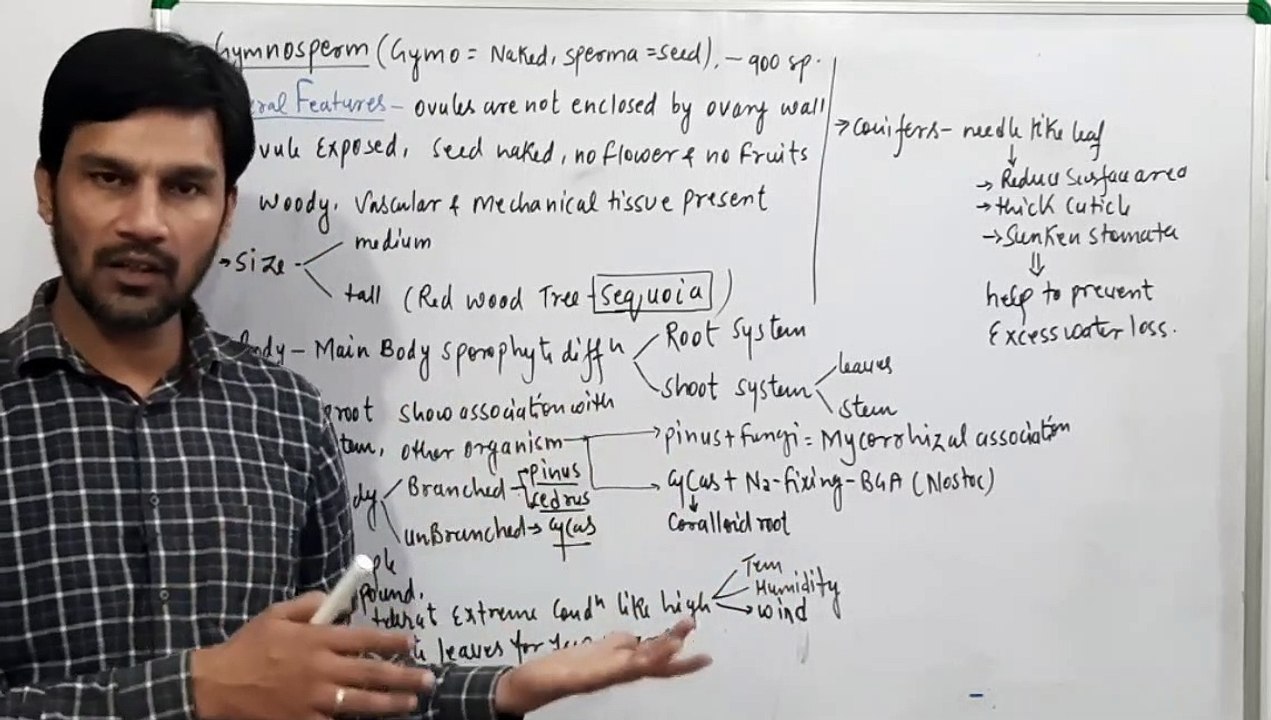 Gymnosperm (Gymo = Naked, sperma = seed). - 900 sp.
eral Features - ovules are not enclosed by ovary wall
vule Exposed, seed naked, no flower & no fruits
woody, Vascular & Mechanical tissue present
→ Size - medium
tall (Red wood Tree - Sequoia)
ody - Main Body sporophyte diffn Root System
shoot system leaves
stem
root show association with
tem, other organism → pinus + fungi = Mycorrhizal association
→ Cycas + N2-fixing - BGA (Nostoc)
Coralloid root
dy Branched → Pinus
Cedrus
unBranched → Cycas
ple
pound.
tolerat Extreme Condn like high Tem
Humidity
→ wind
leaves for
→ Conifers - needle like leaf
→ Reduce Surface area
→ thick cuticle
→ Sunken stomata
⇓
help to prevent
Excess water loss.